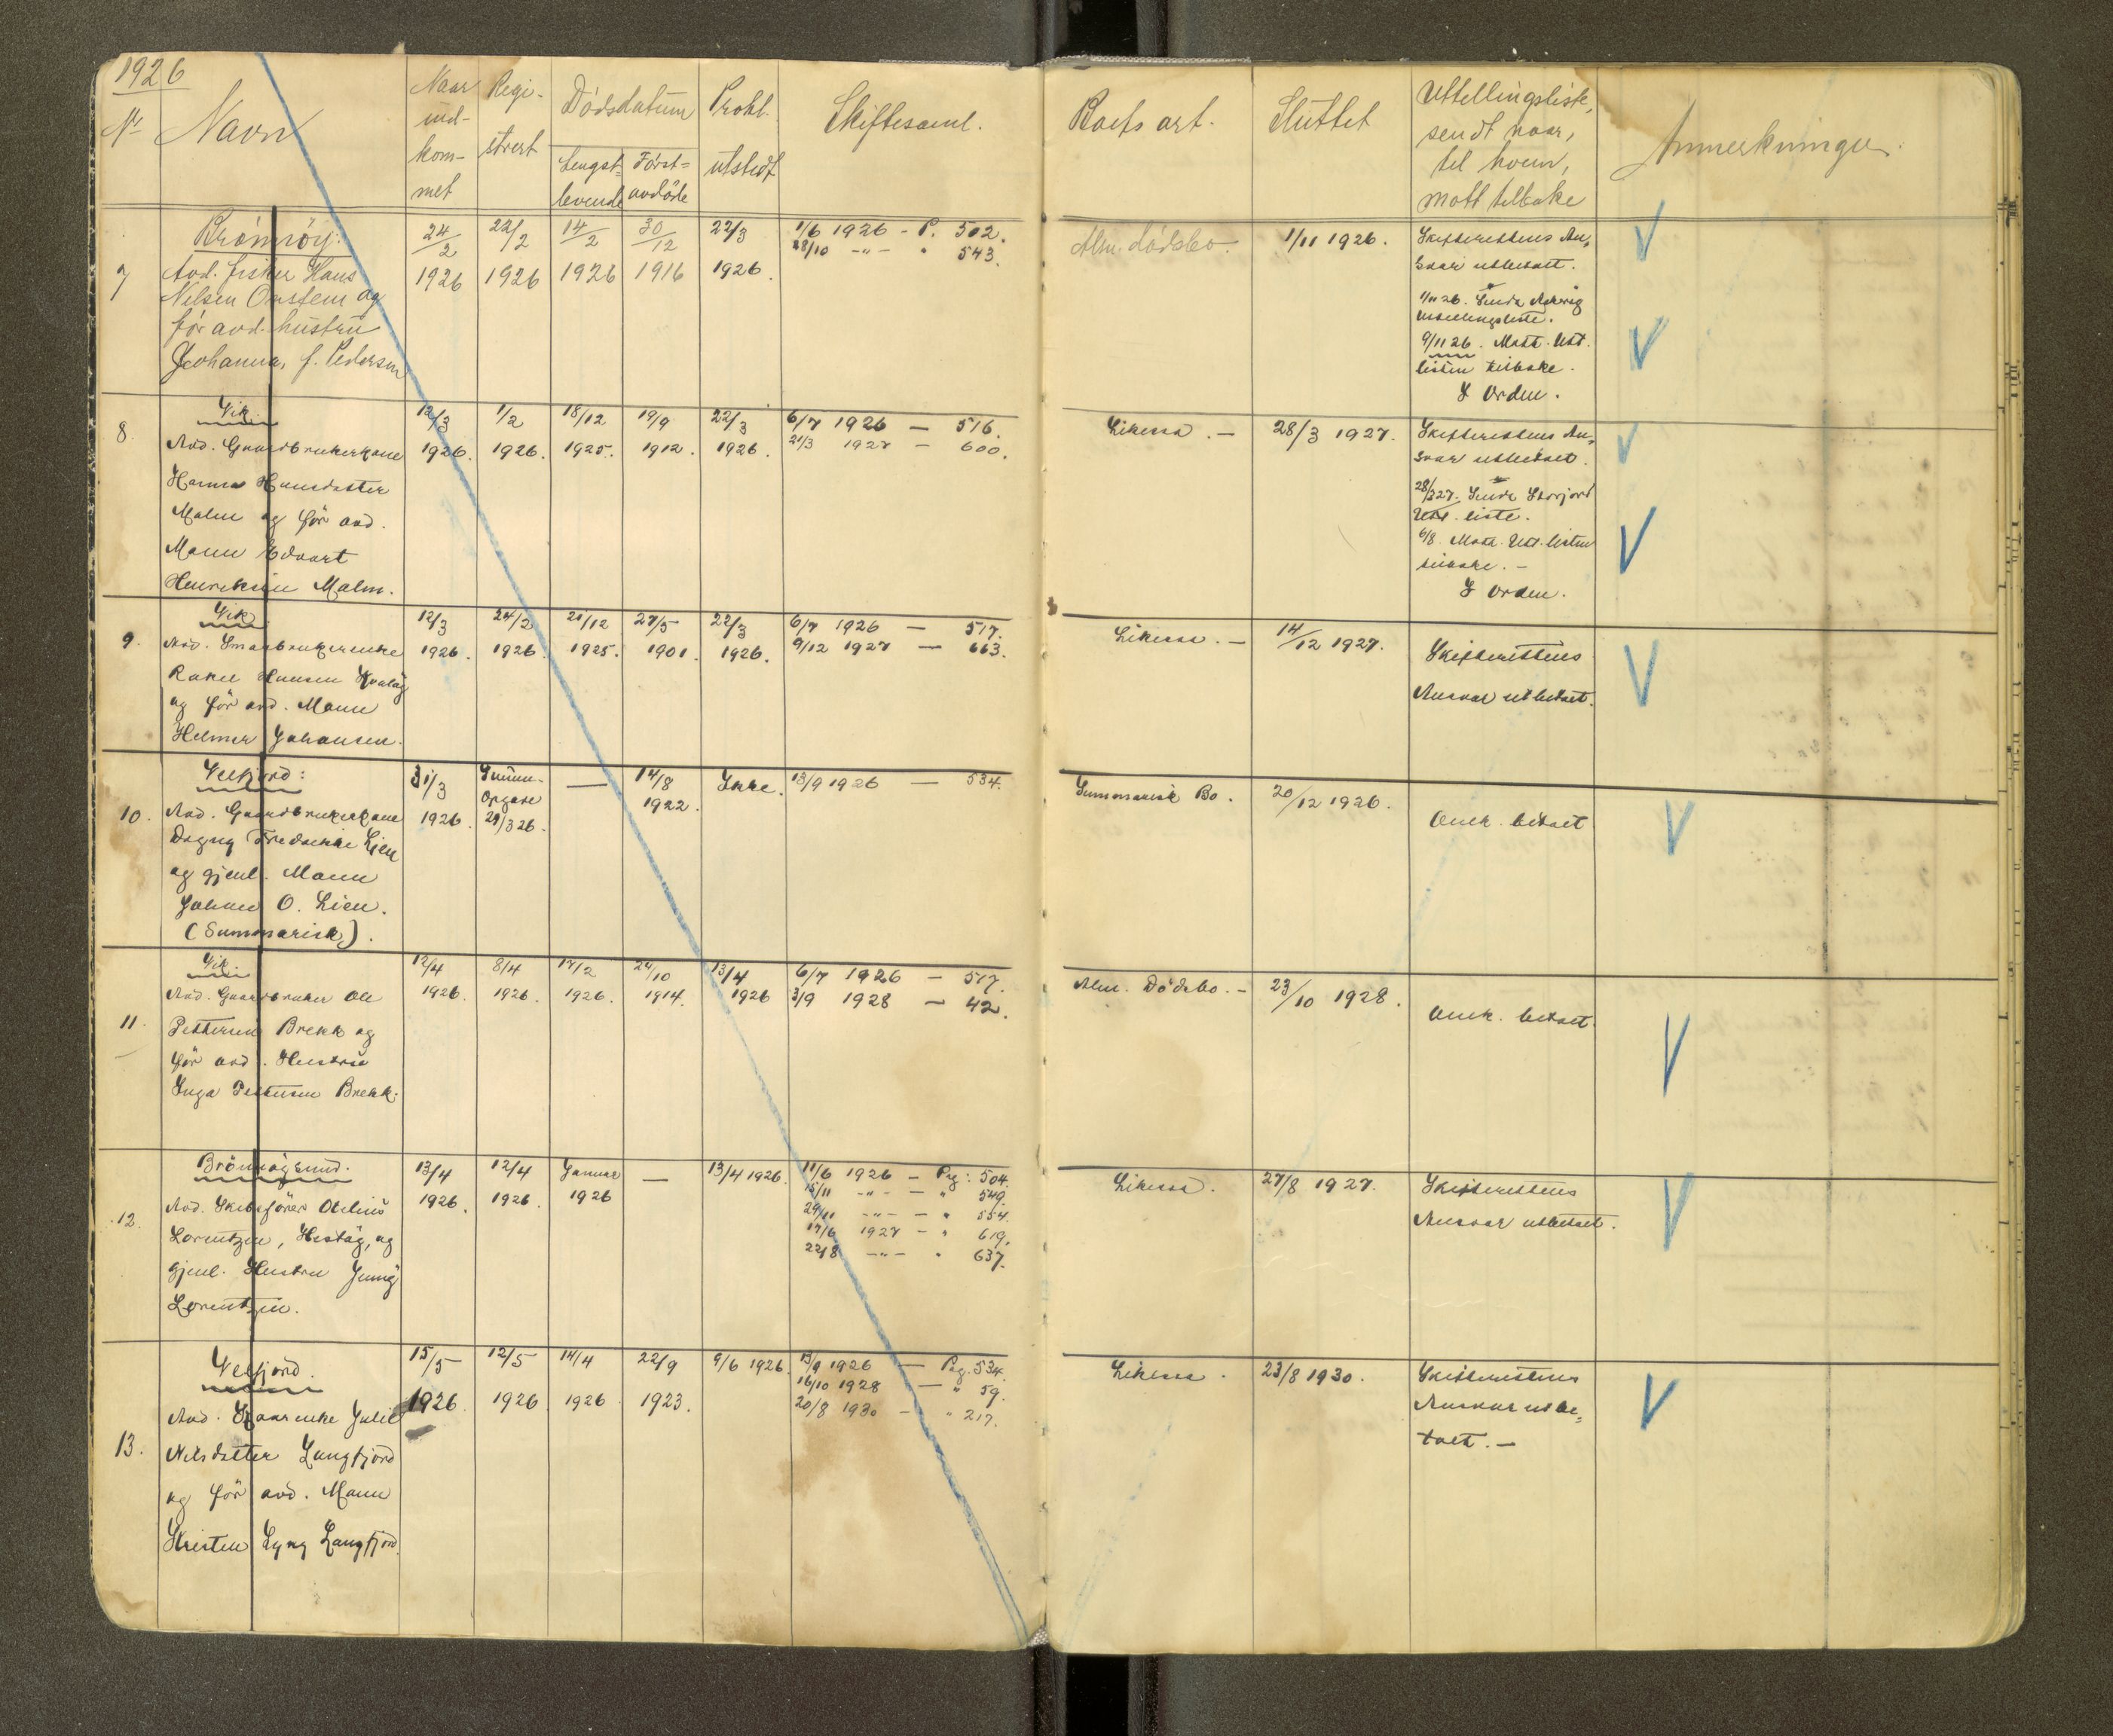 1926
Nr Navn Naar ind-kom-met Regi-strert Dödsdatum Lengst-levende Först-avdöde Prokl. utstedt Skiftesaml. Boets art. Sluttet Uttellingsliste, sendt naar, til hvem, mott tilbake Anmerkninger.
Brönnöy:
7 Avd. fisker Hans
Nilsen Ornstein og
för avd. hustru
Johanna, f. Pedersen
24/2 1926 22/2 1926 14/2 1926 30/12 1916 22/3 1926.
1/6 1926 - P. 502.
28/10 -"- " 543.
Alm. dödsbo. 1/11 1926.
Skifterettens An-
svar utbetalt.
1/11 26. Sendt
Uttellingsliste.
9/11 26. Mott. Utt.
listen tilbake.
I Orden.
Vik.
8. Avd. Gaardbrukerkone
Hanna Hansdatter
Malm og för avd.
Mann Edvart
Henriksen Malm.
12/3 1926. 1/2 1926. 18/12 1925. 19/9 1912. 22/3 1926.
6/7 1926 — 516.
21/3 1927 — 600.
28/3 1927.
Skifterettens An-
svar utbetalt.
28/3 27. Sendt Storjord
Utt. liste.
6/8. Mott. Utt. listen
tilbake. —
I Orden.
Vik
9. Avd. Smaabrukerenke
Rakel Hansen Kvalöy
og för avd. Mann
Helmer Johansen.
12/3 1926. 24/2 1926. 21/12 1925. 27/5 1901. 22/3 1926.
6/7 1926 — 517.
9/12 1927 — 663.
14/12 1927.
Skifterettens
Ansvar utbetalt.
Velfjord:
10. Avd. Gaardbrukerkone
Dagny Fredrikke Lien
og gjenl. Mann
Johan O. Lien.
(Summarisk).
31/3 1926. Summ. Opgave 29/3 26. — 14/8 1922. Ikke.
13/9 1926 — 534.
Summarisk Bo. 20/12 1926.
Omk. betalt
Vik.
11. Avd. Gaardbruker Ole
Pettersen Brekk og
för avd. Hustru
Inga Pettersen Brekk.
12/4 1926. 8/4 1926. 17/2 1926. 24/10 1914. 13/4 1926
6/7 1926 — 517.
3/9 1928 — 42.
Alm. Dödsbo. — 23/10 1928.
Omk. betalt.
Brönnöysund.
12. Avd. Skibsförer Otelius
Lorentzen, Hestöy, og
gjenl. Hustru Jenny
Lorentzen.
13/4 1926. 12/4 1926. Januar 1926 — 13/4 1926.
11/6 1926 — Pag: 504.
15/11 -"- — " 549.
29/11 -"- — " 554.
17/6 1927 - " 619.
22/8 -"- " 637.
27/8 1927.
Skifterettens
Ansvar utbetalt.
Velfjord.
13. Avd. Kaarenke Julie
Nilsdatter Langfjord
og för avd. Mann
Kristen Lyng Langfjord.
15/5 1926 12/5 1926 14/4 1926. 22/9 1923. 9/6 1926.
13/9 1926 — Pag. 534.
16/10 1928 — " 59.
20/8 1930 — " 217.
23/8 1930.
Skifterettens
Ansvar utbe-
talt. —